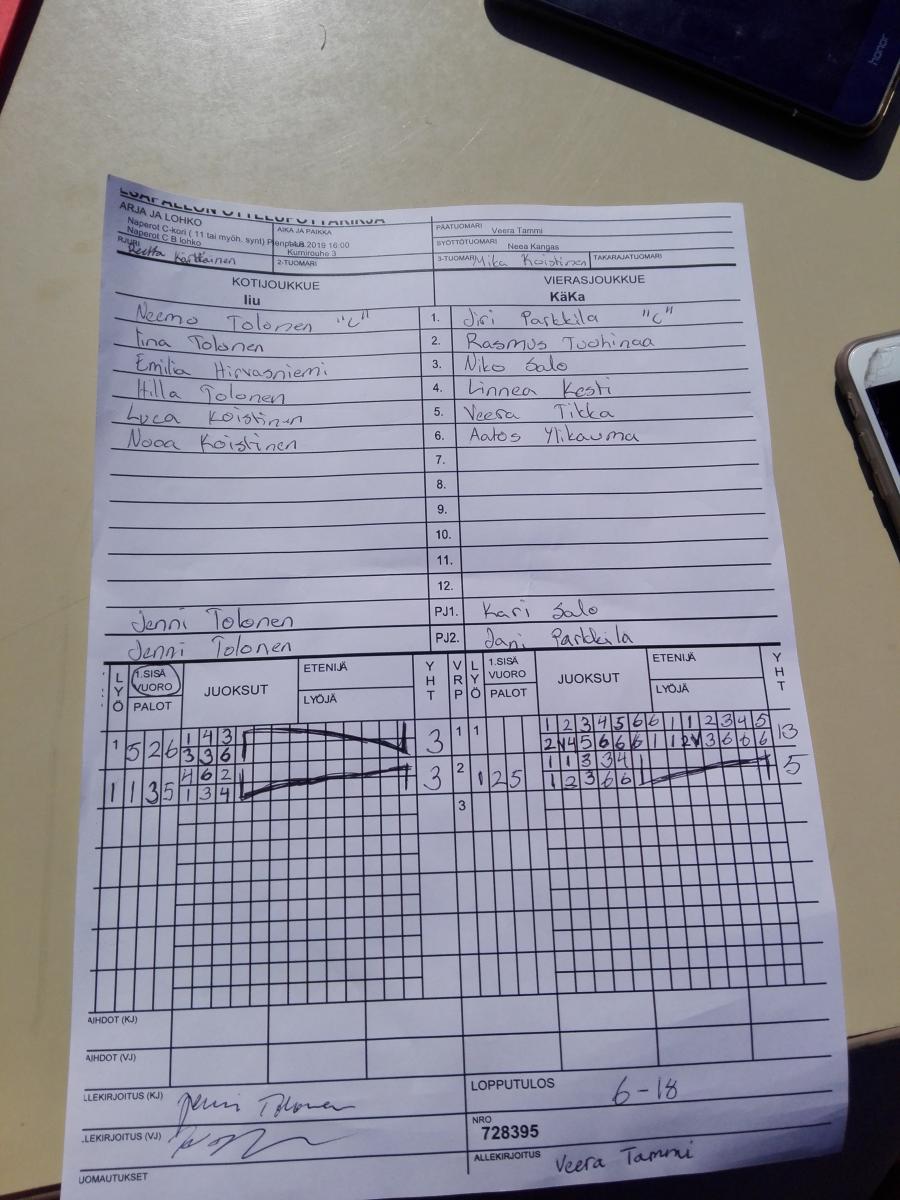 honor
LUAPALLON OTTELUPÖYTÄKIRJA
ARJA JA LOHKO
Naperot C-kori ( 11 tai myöh. synt) Pienpe
Naperot C B lohko
AIKA JA PAIKKA
2019 16:00
Kumirouhe 3
PÄÄTUOMARI Veera Tammi
SYÖTTÖTUOMARI Neea Kangas
RJURI
Reetta Karttainen
2-TUOMARI
3-TUOMARI Mika Koistinen
TAKARAJATUOMARI
KOTIJOUKKUE VIERASJOUKKUE
Iiu KäKa
Neemo Tolonen "C" 1. Jiri Parkkila "C"
Iina Tolonen 2. Rasmus Tuohinaa
Emilia Hirvasniemi 3. Niko Salo
Hilla Tolonen 4. Linnea Kesti
Luca Koistinen 5. Veera Tikka
Nooa Koistinen 6. Aatos Ylikauma
7.
8.
9.
10.
11.
12.
Jenni Tolonen PJ1. Kari Salo
Jenni Tolonen PJ2. Jani Parkkila
LYÖ 1.SISÄ VUORO PALOT JUOKSUT ETENIJÄ LYÖJÄ YHT VRP LYÖ 1.SISÄ VUORO PALOT JUOKSUT ETENIJÄ LYÖJÄ YHT
1 4 3 1 2 3 4 5 6 6 1 1 2 3 4 5
1 5 2 6 3 3 6 3 1 1 13
4 6 2 2 1 1 3 3 4
1 1 3 5 1 3 4 3 1 2 5 1 2 3 6 6 5
3
AIHDOT (KJ)
AIHDOT (VJ)
LLEKIRJOITUS (KJ) Jenni Tolonen
LOPPUTULOS 6-18
LLEKIRJOITUS (VJ)
NRO
728395
UOMAUTUKSET
ALLEKIRJOITUS Veera Tammi